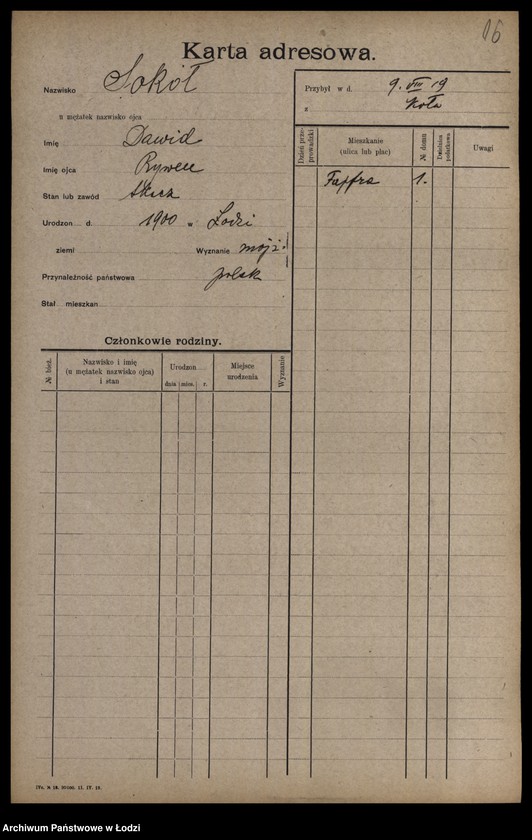 16
Karta adresowa.
Nazwisko Sokół
u mężatek nazwisko ojca
Imię Dawid
Imię ojca Rywen
Stan lub zawód tkacz
Urodzon d. 1900 w Łodzi
ziemi Wyznanie mojż.
Przynależność państwowa polsk
Stał. mieszkan.
Przybył w d. 9. VIII 19
z Koła
Dzień przeprowadzki
Mieszkanie
(ulica lub plac)
№ domu
Dzielnica podatkowa
Uwagi
1.
Członkowie rodziny.
№ bież.
Nazwisko i imię
(u mężatek nazwisko ojca)
i stan
Urodzon
dnia mies. r.
Miejsce
urodzenia
Wyznanie
Archiwum Państwowe w Łodzi